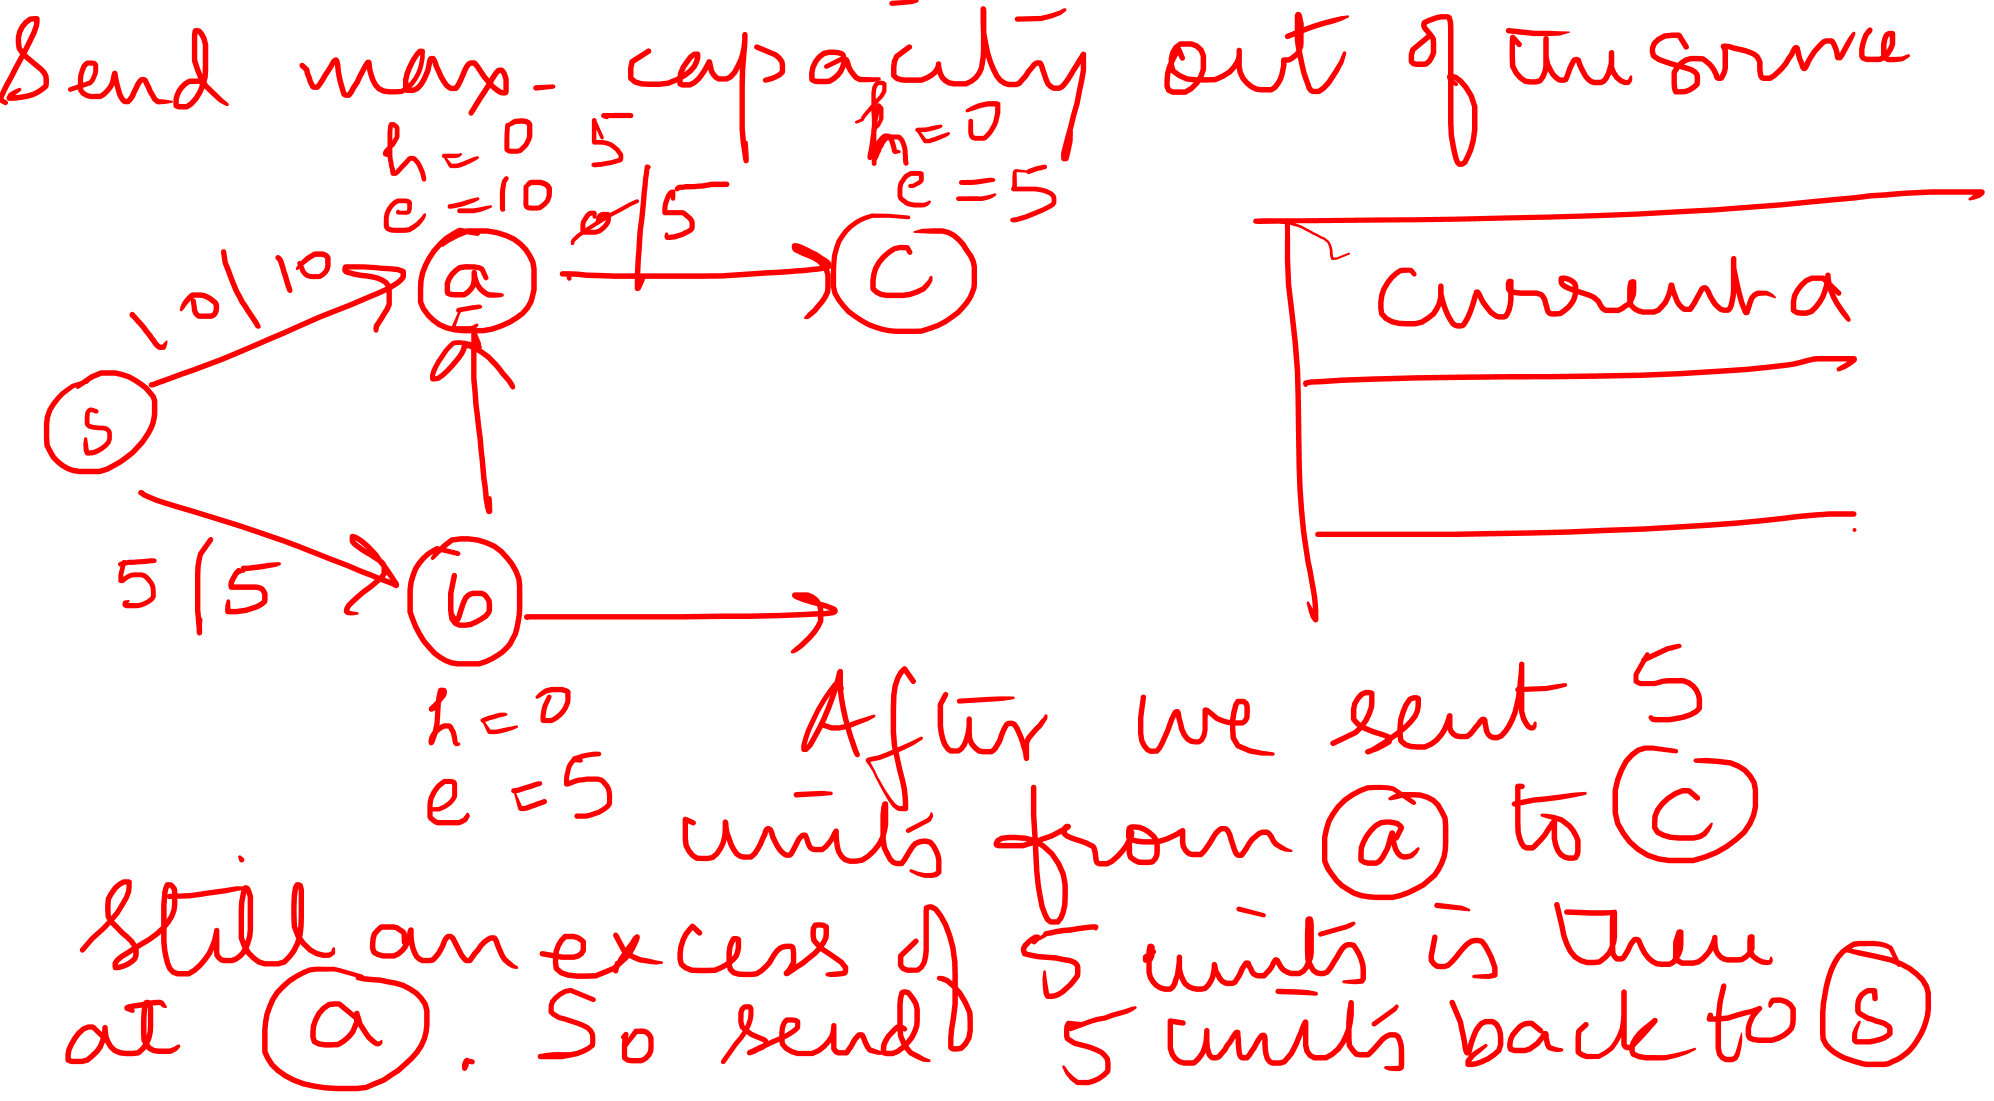 Send max. capacity out of the source
h=0 5 h=0
e=10 0/5 e=5
10/10 a c
current a
s
5/5 b
h=0
e=5
After we sent 5
units from a to c
Still an excess of 5 units is there
at a. So send 5 units back to s